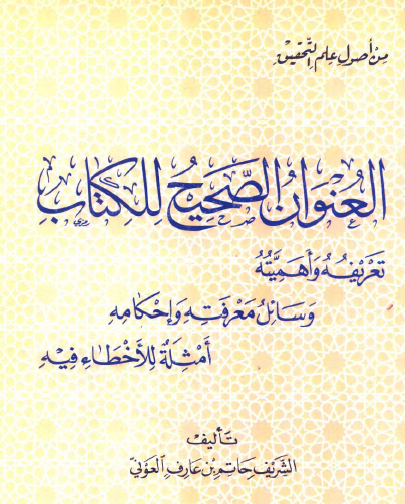 من أصول علم التحقيق
العُنوَانُ الصَّحِيحُ لِلكِتَابِ
تَعْرِيفُهُ وَأَهَمِّيَّتُهُ
وَسَائِلُ مَعْرِفَتِهِ وَإِحْكَامِهِ
أَمْثِلَةٌ لِلأَخْطَاءِ فِيْهِ
تأليف
الشَّرِيف حَاتِم بْن عَارِف العَوْنِيّ